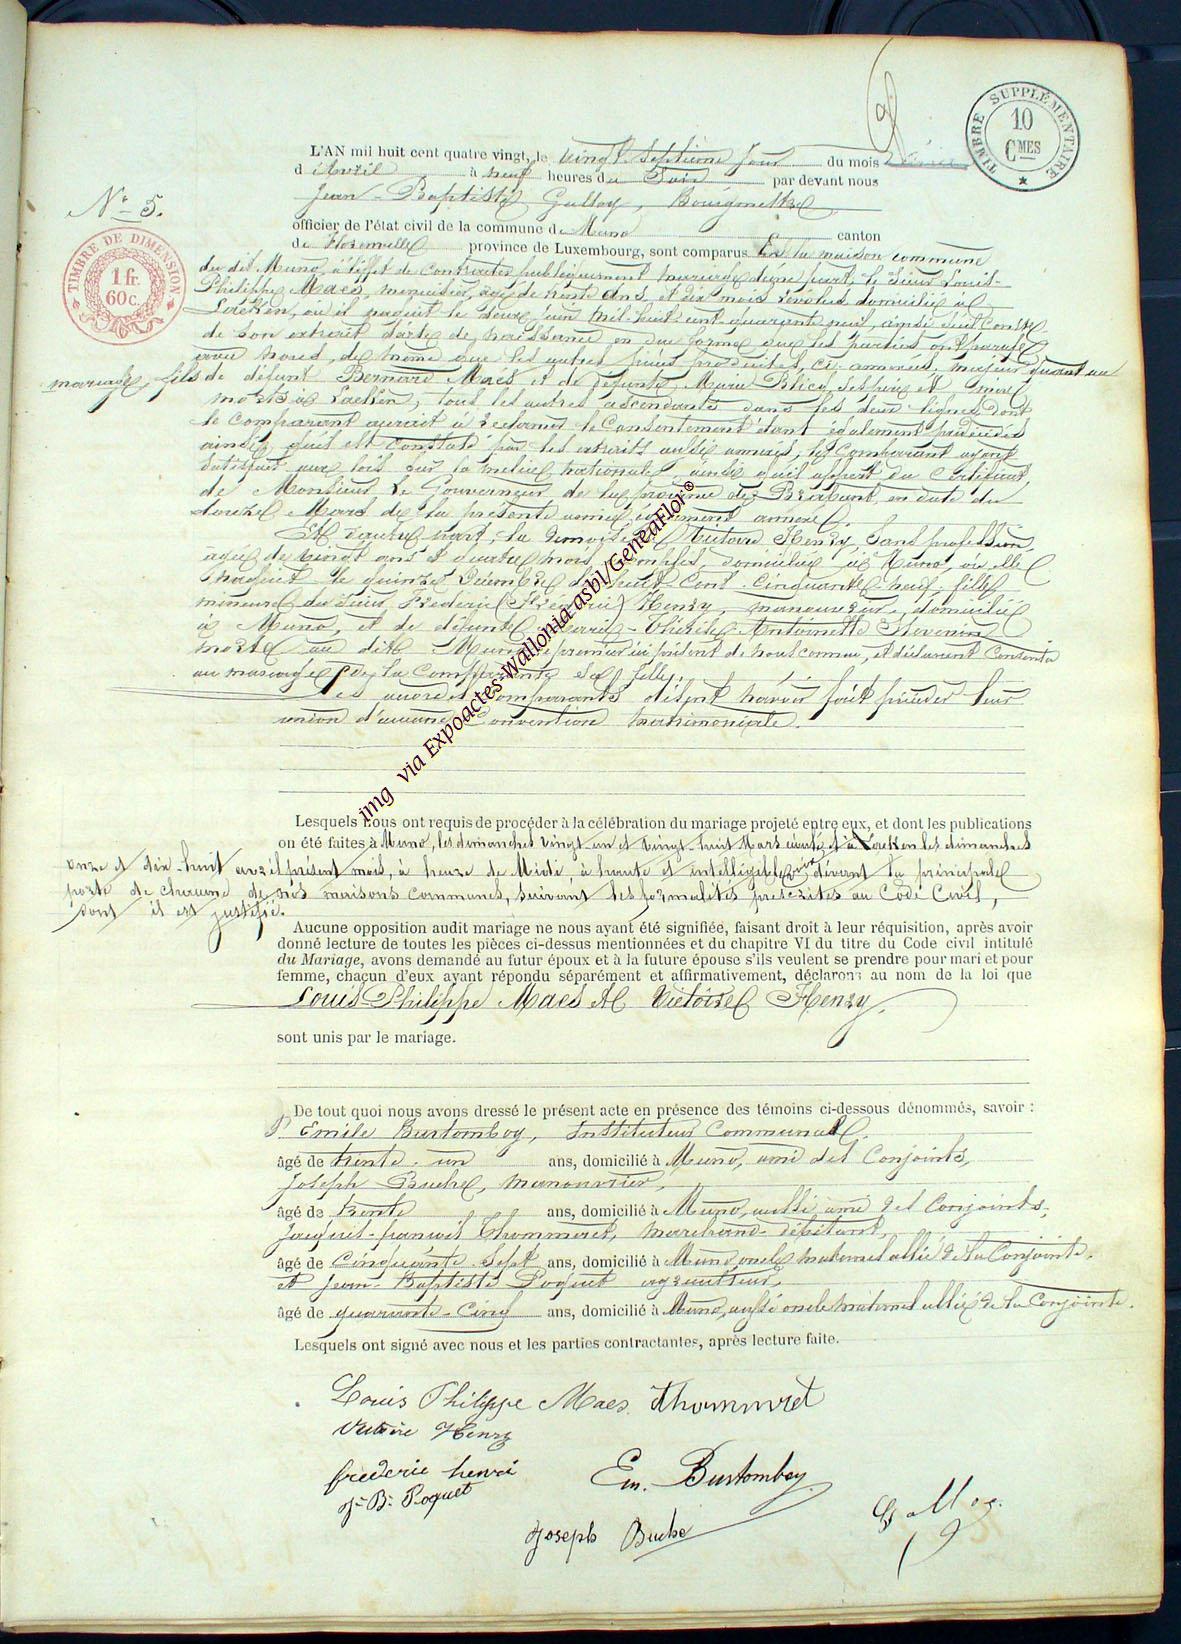 TIMBRE SUPPLÉMENTAIRE
10
CMES
No 5.
TIMBRE DE DIMENSION
1 fr.
60 c.
L'AN mil huit cent quatre vingt, le vingt Septième jour du mois
d'Avril à neuf heures du Soir par devant nous
Jean-Baptiste Galloy, Bourgmestre
officier de l'état civil de la commune de Muno canton
de Florenville province de Luxembourg, sont comparus En la maison commune
du dit Muno, à l'effet de contracter publiquement mariage d'une part, le Sieur Louis-
Philippe Maes, menuisier, âgé de trente ans, et dix mois révolus domicilié à
Laeken, où il naquit le douze juin mil-huit-cent-quarante neuf, ainsi qu'il conste
de son extrait d'acte de naissance en due forme que les parties ont
avec nous, de même que les autres pièces produites, ci-annexées, majeur quant au
mariage, fils de défunt Bernard Maes, et de défunte Marie Blicq, ses père et mère
morts à Laeken, tous les autres ascendants dans les deux lignes dont
le comparant aurait à réclamer le consentement étant également prédécédés
ainsi qu'il est constaté par les extraits aussi annexés, le Comparant ayant
satisfait aux lois sur la milice nationale, ainsi qu'il appert du certificat,
de Monsieur le Gouverneur de la province de Brabant, en date du
douze Mars de la présente année, également annexé.
Et d'autre part, la demoiselle Victoire Henry, Sans profession,
âgée de vingt ans et quatre mois accomplis, domiciliée à Muno, où elle
naquit le quinze Décembre dix huit-Cent-Cinquante neuf, fille
mineure du Sieur Frédéric Henry, manouvrier, domicilié
à Muno, et de défunte Marie-Thérèse Antoinette Stevenin
morte au dit Muno, le premier ici présent de nous connu, et déclarant Consentir
au mariage de la Comparante sa fille.
Les autres comparants disent n'avoir fait précéder leur
union d'aucune Convention matrimoniale.
img via Expoactes-Wallonia asbl/GeneaFlor©
Lesquels nous ont requis de procéder à la célébration du mariage projeté entre eux, et dont les publications
on été faites à Muno, les dimanches vingt-un et vingt-huit Mars écoulé et à Laeken les dimanches
onze et dix-huit avril présent mois, à heure de Midi, à haute et intelligible voix, devant la principale
porte de chacune de nos maisons communes, suivant les formalités prescrites au Code Civil,
dont il est justifié.
Aucune opposition audit mariage ne nous ayant été signifiée, faisant droit à leur réquisition, après avoir
donné lecture de toutes les pièces ci-dessus mentionnées et du chapitre VI du titre du Code civil intitulé
du Mariage, avons demandé au futur époux et à la future épouse s'ils veulent se prendre pour mari et pour
femme, chacun d'eux ayant répondu séparément et affirmativement, déclarons au nom de la loi que
Louis Philippe Maes et Victoire Henry.
sont unis par le mariage.
De tout quoi nous avons dressé le présent acte en présence des témoins ci-dessous dénommés, savoir :
Emile Bustomboy, Instituteur Communal.
âgé de trente-un ans, domicilié à Muno, ami des Conjoints,
Joseph Buche, manouvrier,
âgé de trente ans, domicilié à Muno, aussi ami des Conjoints,
Jacques-françois Thommeret, marchand-débitant,
âgé de Cinquante-Sept ans, domicilié à Muno oncle maternel allié de la Conjointe.
et Jean-Baptiste Poquet agriculteur,
âgé de quarante-Cinq ans, domicilié à Muno, aussi oncle maternel allié de la Conjointe.
Lesquels ont signé avec nous et les parties contractantes, après lecture faite.
Louis Philippe Maes Thommeret
Victoire Henry
frederic henri Em. Bustomboy
J-B- Poquet
Joseph Buche Galloy.